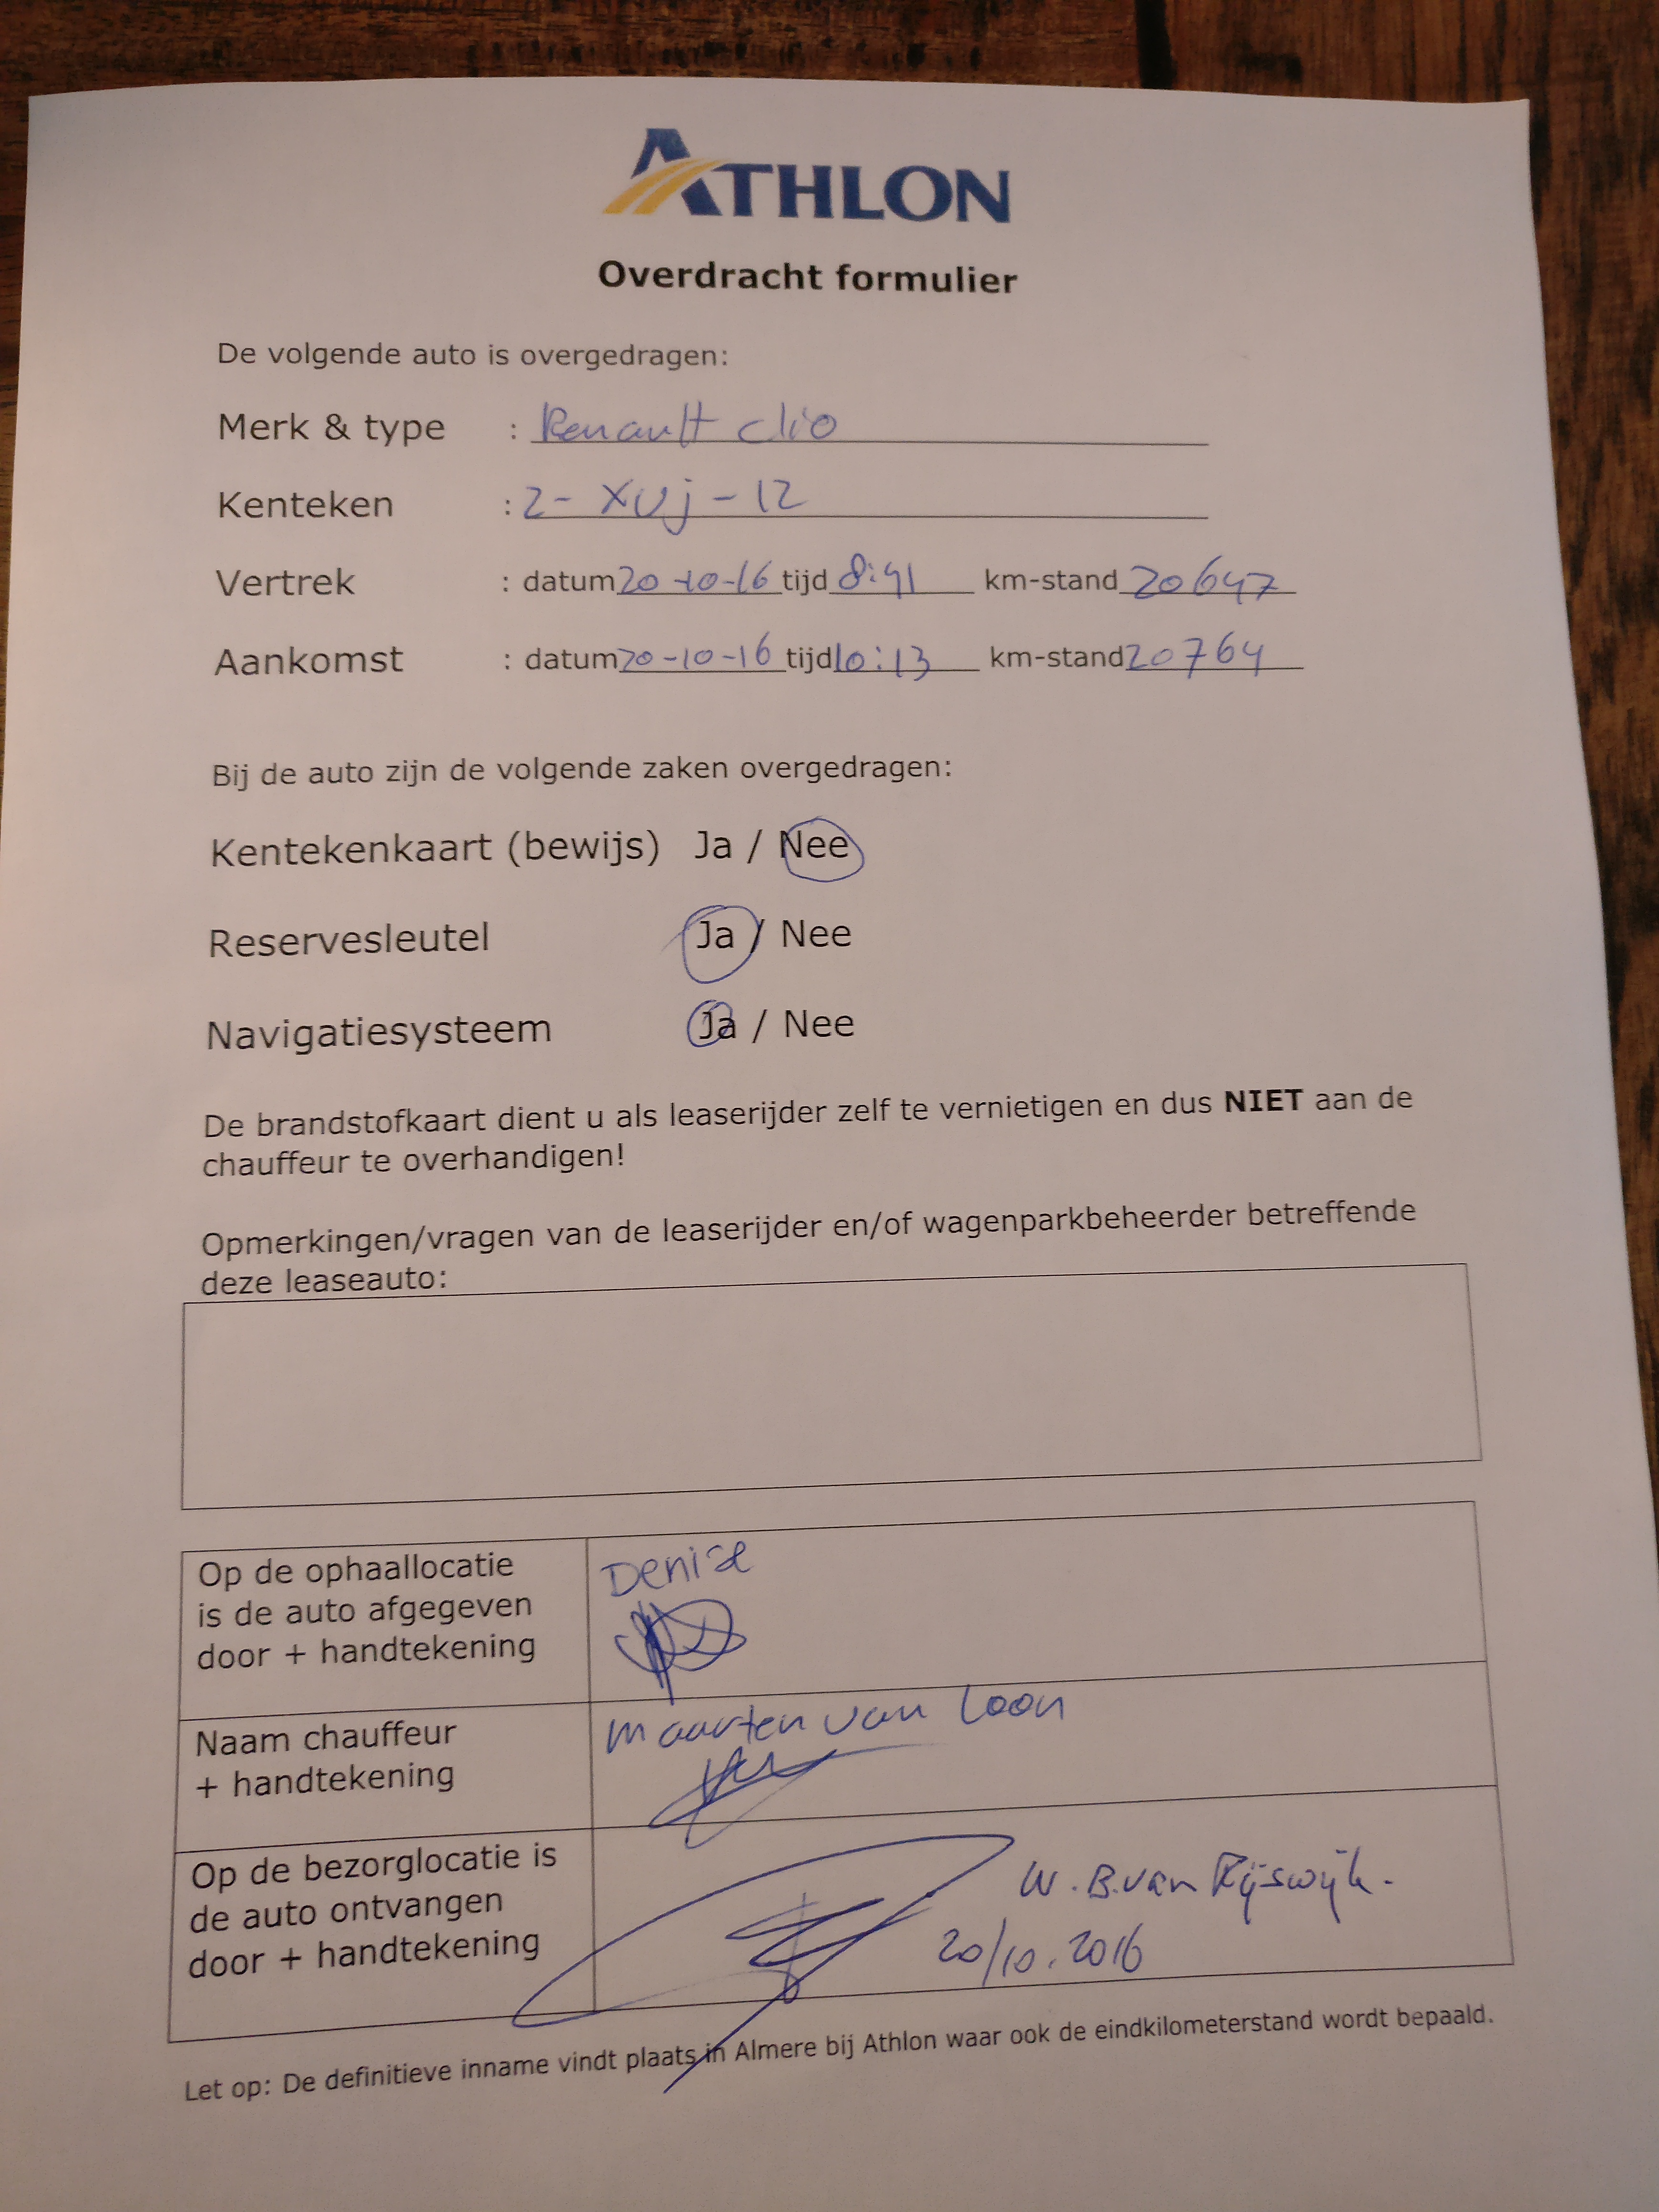 ATHLON
Overdracht formulier
De volgende auto is overgedragen:
Merk & type : Renault clio
Kenteken : 2- XUj - 12
Vertrek : datum 20-10-16 tijd 8:41 km-stand 20647
Aankomst : datum 20-10-16 tijd 10:13 km-stand 20764
Bij de auto zijn de volgende zaken overgedragen:
Kentekenkaart (bewijs) Ja / Nee
Reservesleutel Ja / Nee
Navigatiesysteem Ja / Nee
De brandstofkaart dient u als leaserijder zelf te vernietigen en dus NIET aan de
chauffeur te overhandigen!
Opmerkingen/vragen van de leaserijder en/of wagenparkbeheerder betreffende
deze leaseauto:
Op de ophaallocatie
is de auto afgegeven
door + handtekening
Denise
Naam chauffeur
+ handtekening
Maarten van Loon
Op de bezorglocatie is
de auto ontvangen
door + handtekening
W.B. van Rijswijk.
20/10.2016
Let op: De definitieve inname vindt plaats in Almere bij Athlon waar ook de eindkilometerstand wordt bepaald.